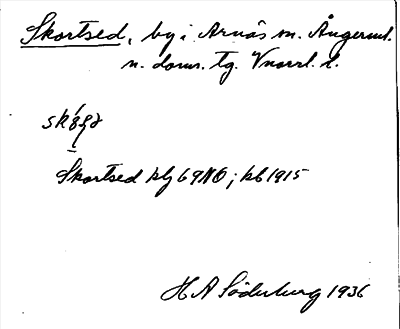 Skortsed, by i Arnäs sn. Ångerml.
n. doms. tg. Vnorrl. l.
Skortsed klj 69 NO; kb 1915
H A Söderberg 1936